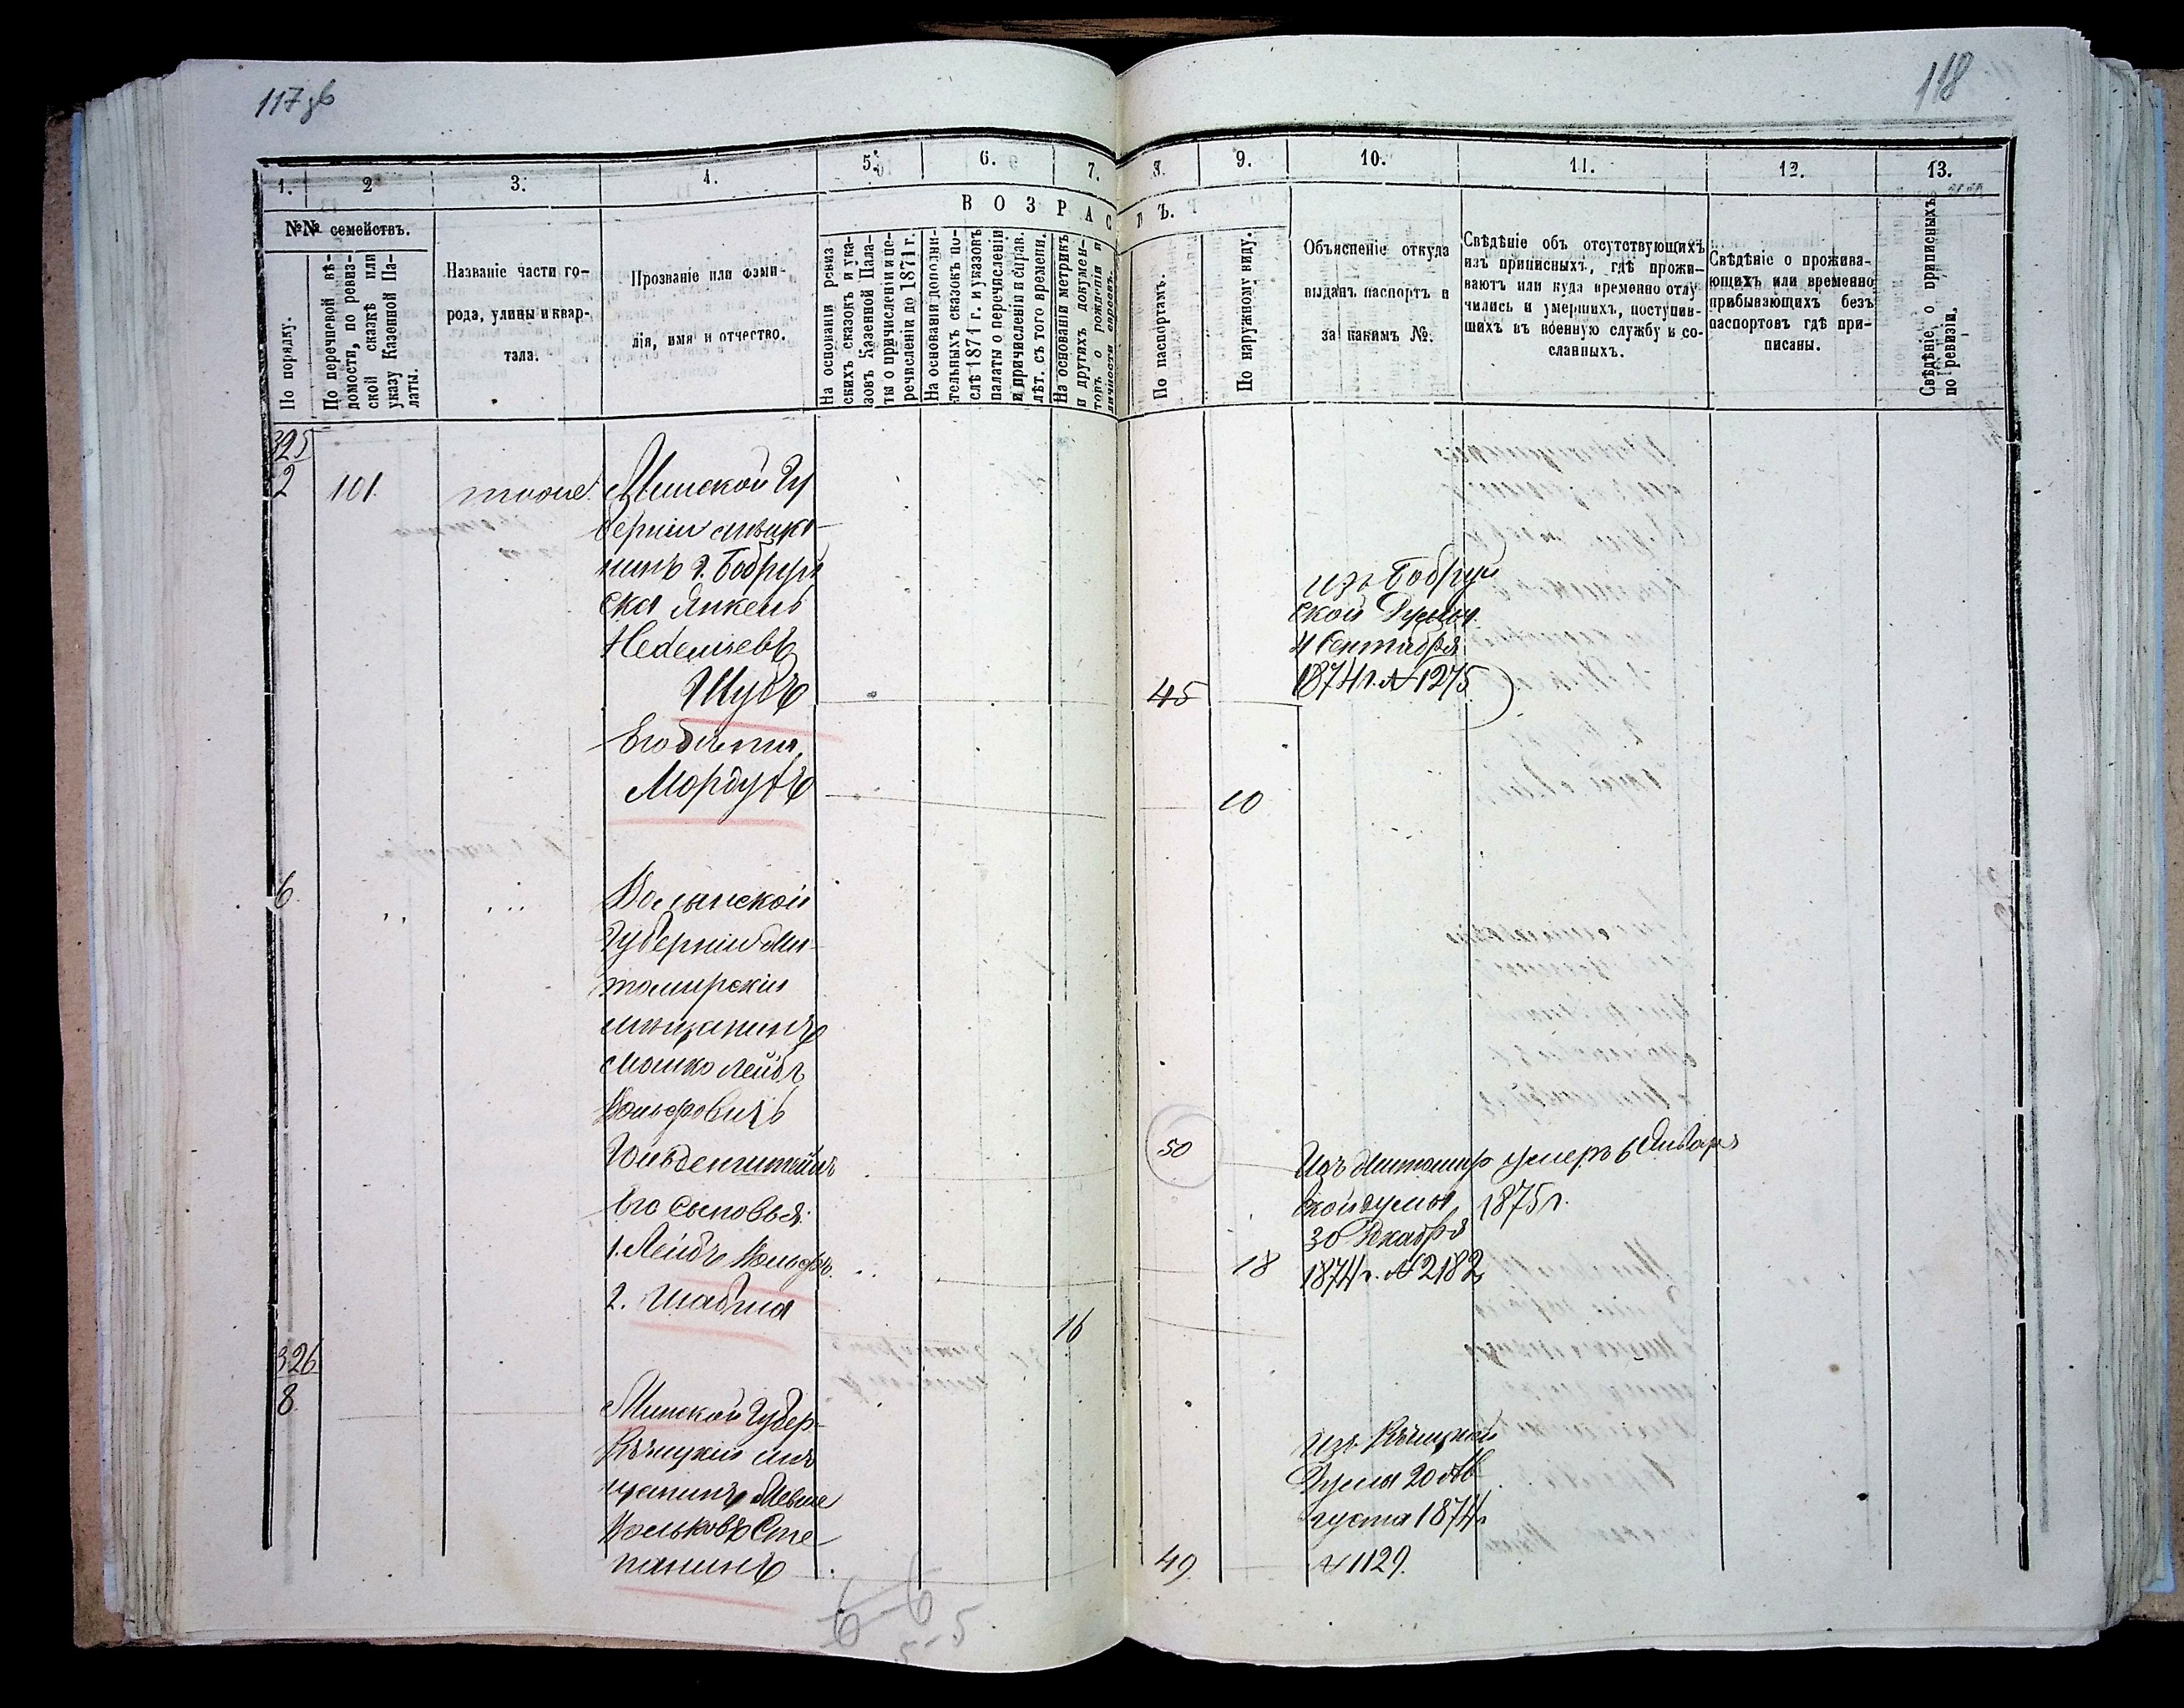 117 зв
118
1.
2
3.
4.
5.
6.
7.
8.
9.
10.
11.
12.
13.
№№ семействъ.
По порядку.
По перечневой вѣ-
домости, по ревиз-
ской сказкѣ или
указу Казенной Па-
латы.
Названіе части го-
рода, улицы и квар-
тала.
Прозваніе или фами-
лія, имя и отчество.
ВОЗРАСТЪ.
На основаніи ревиз
скихъ сказокъ и ука-
зовъ Казенной Пала-
ты о причисленіи и пе-
речисленіи до 1871 г.
На основаніи дополни-
тельныхъ сказокъ по-
слѣ 1871 г. и указовъ
палаты о перечисленіи
и причисленіи и справ.
лѣт. съ того времени.
На основаніи метрикъ
и другихъ докумен-
товъ о рожденіи и
личности евреевъ.
По паспортамъ.
По наружному виду.
Объясненіе откуда
выданъ паспортъ и
за какимъ №.
Свѣдѣніе объ отсутствующихъ
изъ приписныхъ, гдѣ прожи-
ваютъ или куда временно отлу
чились и умершихъ, поступив-
шихъ въ военную службу и со-
сланныхъ.
Свѣдѣніе о прожива-
ющихъ или временно
прибывающихъ безъ
паспортовъ гдѣ при-
писаны.
Свѣдѣніе о приписныхъ
по ревизіи.
325
2
101.
тоже.
Минской Гу
берніи мѣща
нинъ г. Бобруй
ска Янкель
Шубъ
45
изъ Бобруй
ской Думы
4 Сентября
1874 г. № 1275
Его дѣти
Мордухъ
10
6
Волынской
Губерніи Жи-
томирскій
мѣщанинъ
Мошко Лейбъ
Вольфовичъ
Гольденштейнъ
50
Изъ Житомир
ской думы
30 Декабря
1874 г. № 2182
умеръ 6 Января
1875 г.
Его сыновья:
1. Лейбъ Вольфъ.
18
2. Шабша
16
326
8
Минской Губер-
Рѣчицкій мѣ
щанинъ Мевше
Вольковъ Сте
панинъ
49
Изъ Рѣчицкой
Думы 20 Ав
густа 1874 г
№ 1129.
6-6
5-5